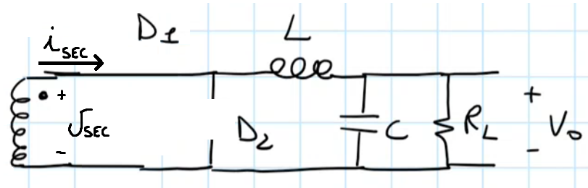 i_SEC
D1
L
+
V_SEC
-
D2
C
R_L
+
V_o
-